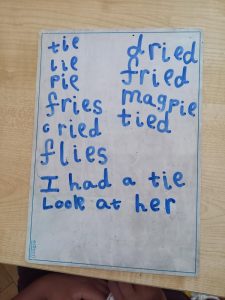 tie
lie
pie
fries
cried
flies
dried
fried
magpie
tied
I had a tie
Look at her